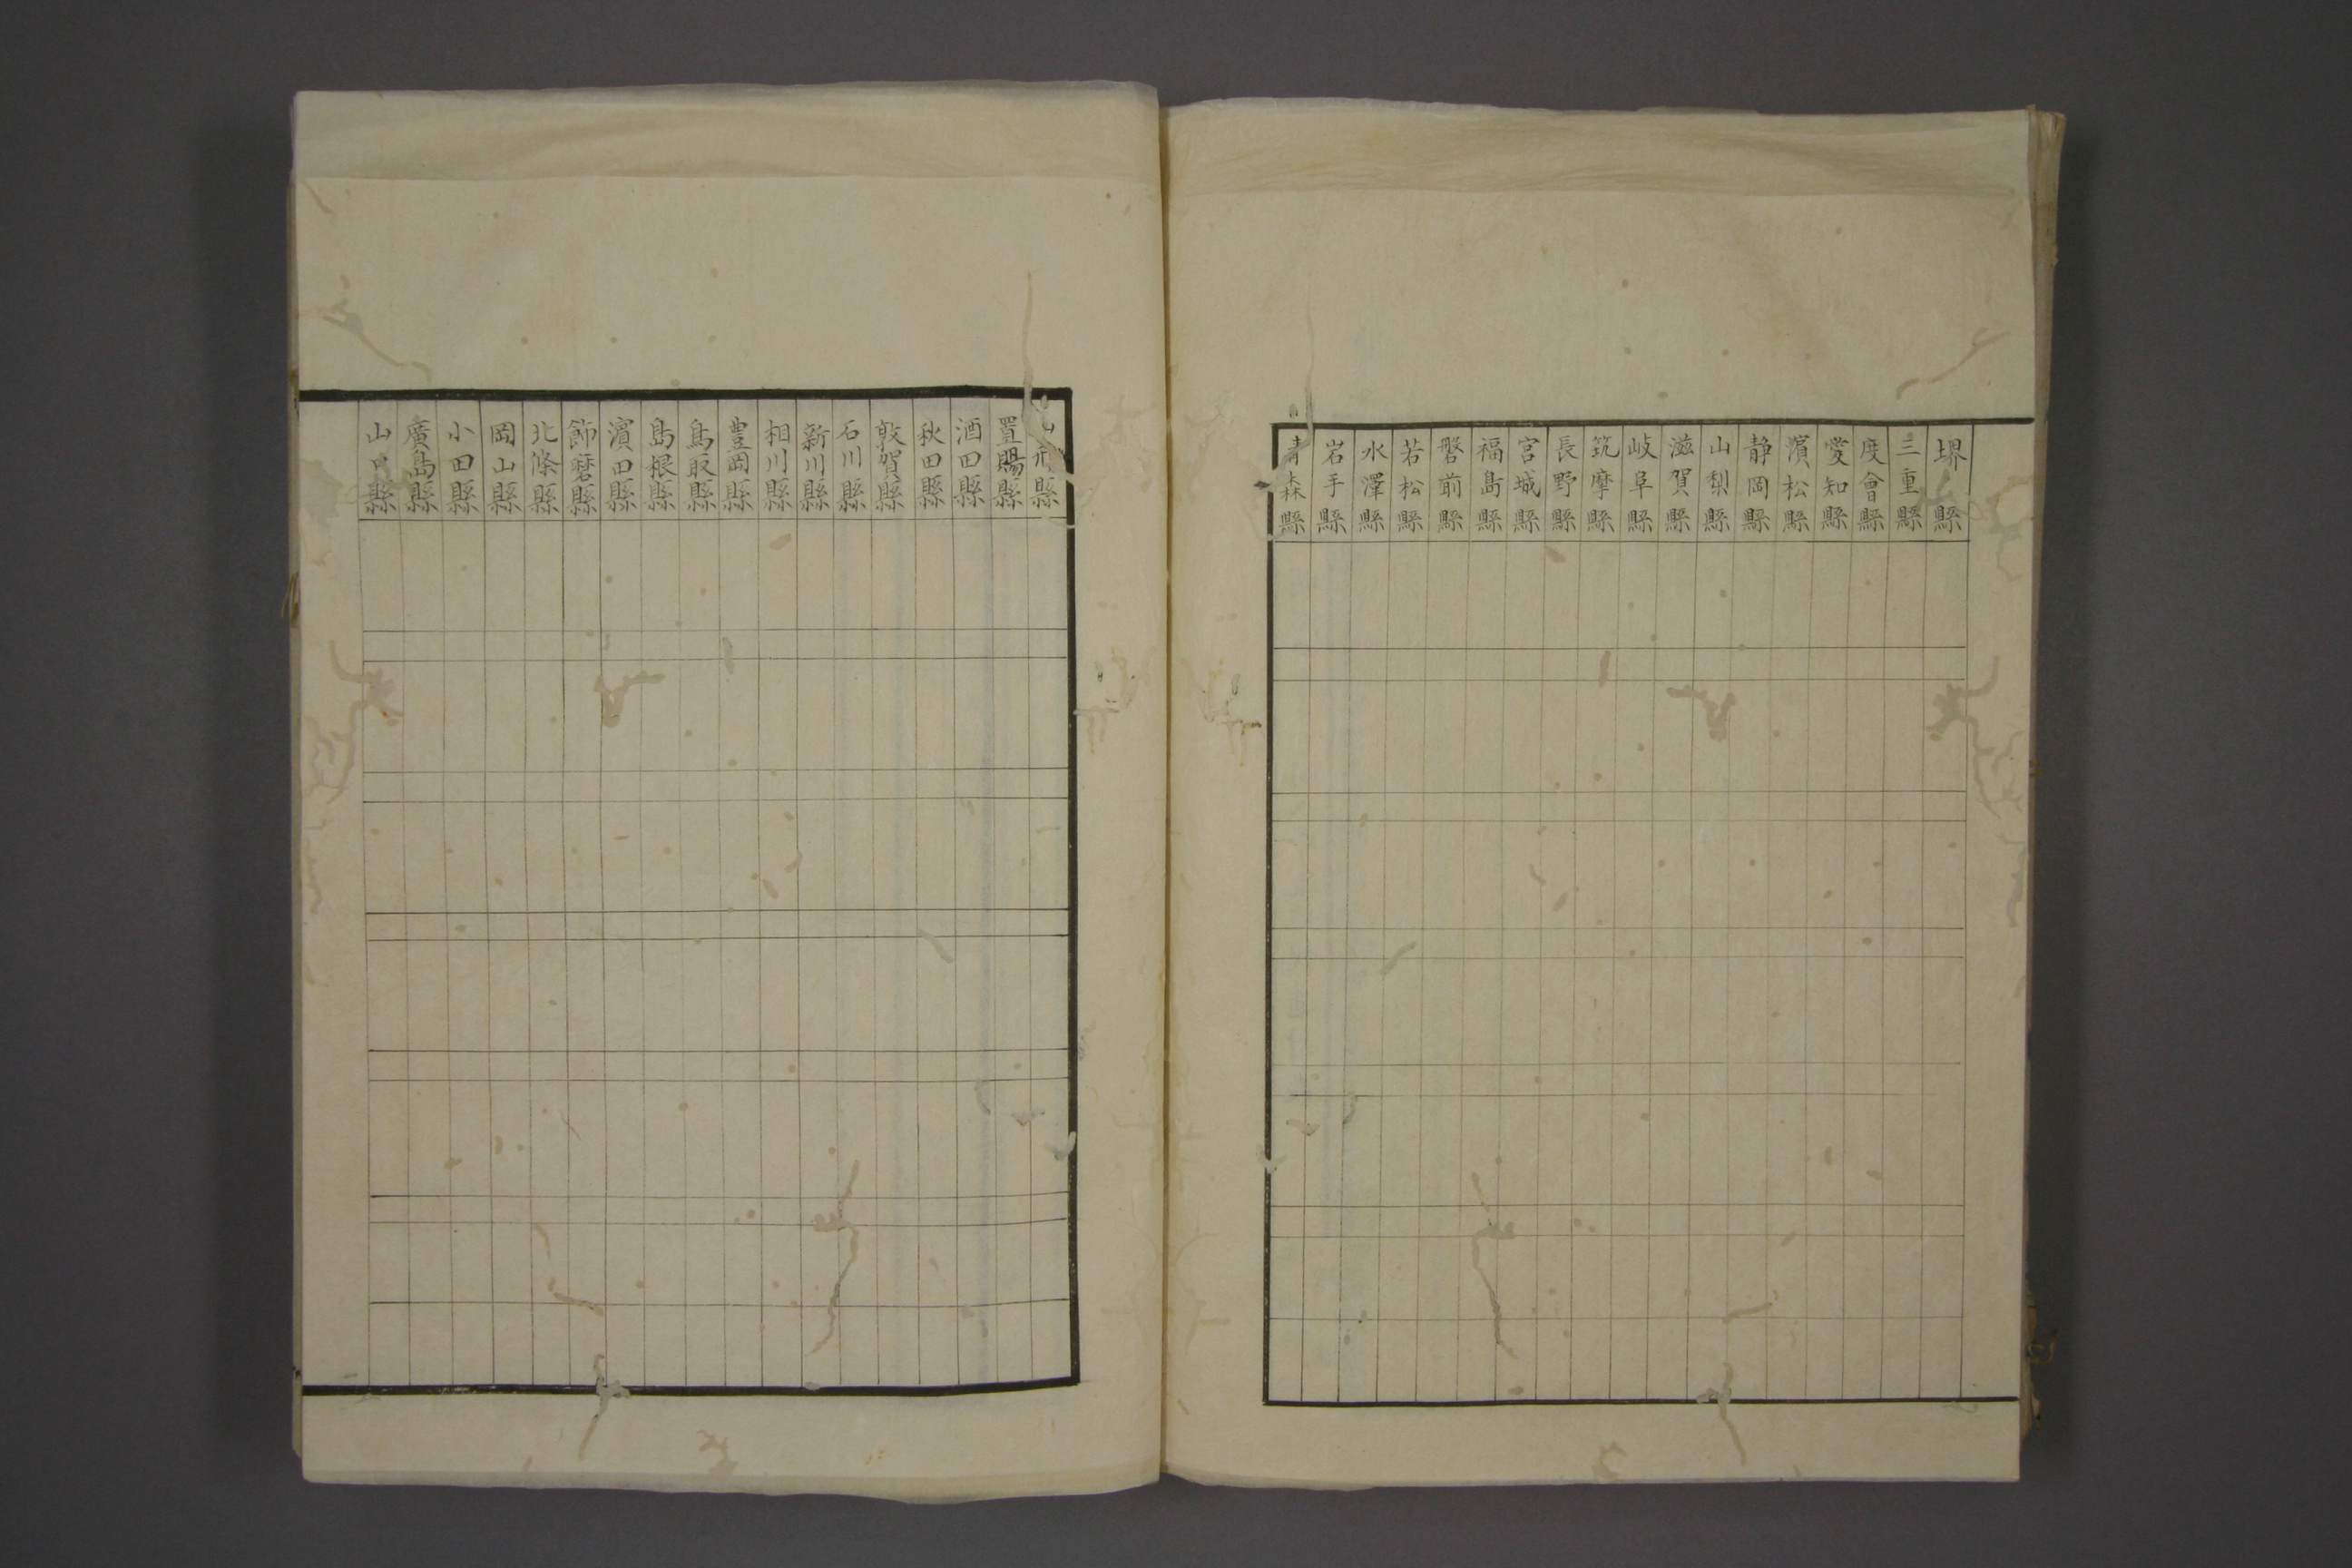 堺縣
三重縣
度會縣
愛知縣
濱松縣
静岡縣
山梨縣
滋賀縣
岐阜縣
筑摩縣
長野縣
宮城縣
福島縣
磐前縣
若松縣
水澤縣
岩手縣
青森縣
山形縣
置賜縣
酒田縣
秋田縣
敦賀縣
石川縣
新川縣
相川縣
豊岡縣
鳥取縣
島根縣
濱田縣
飾磨縣
北條縣
岡山縣
小田縣
廣島縣
山口縣